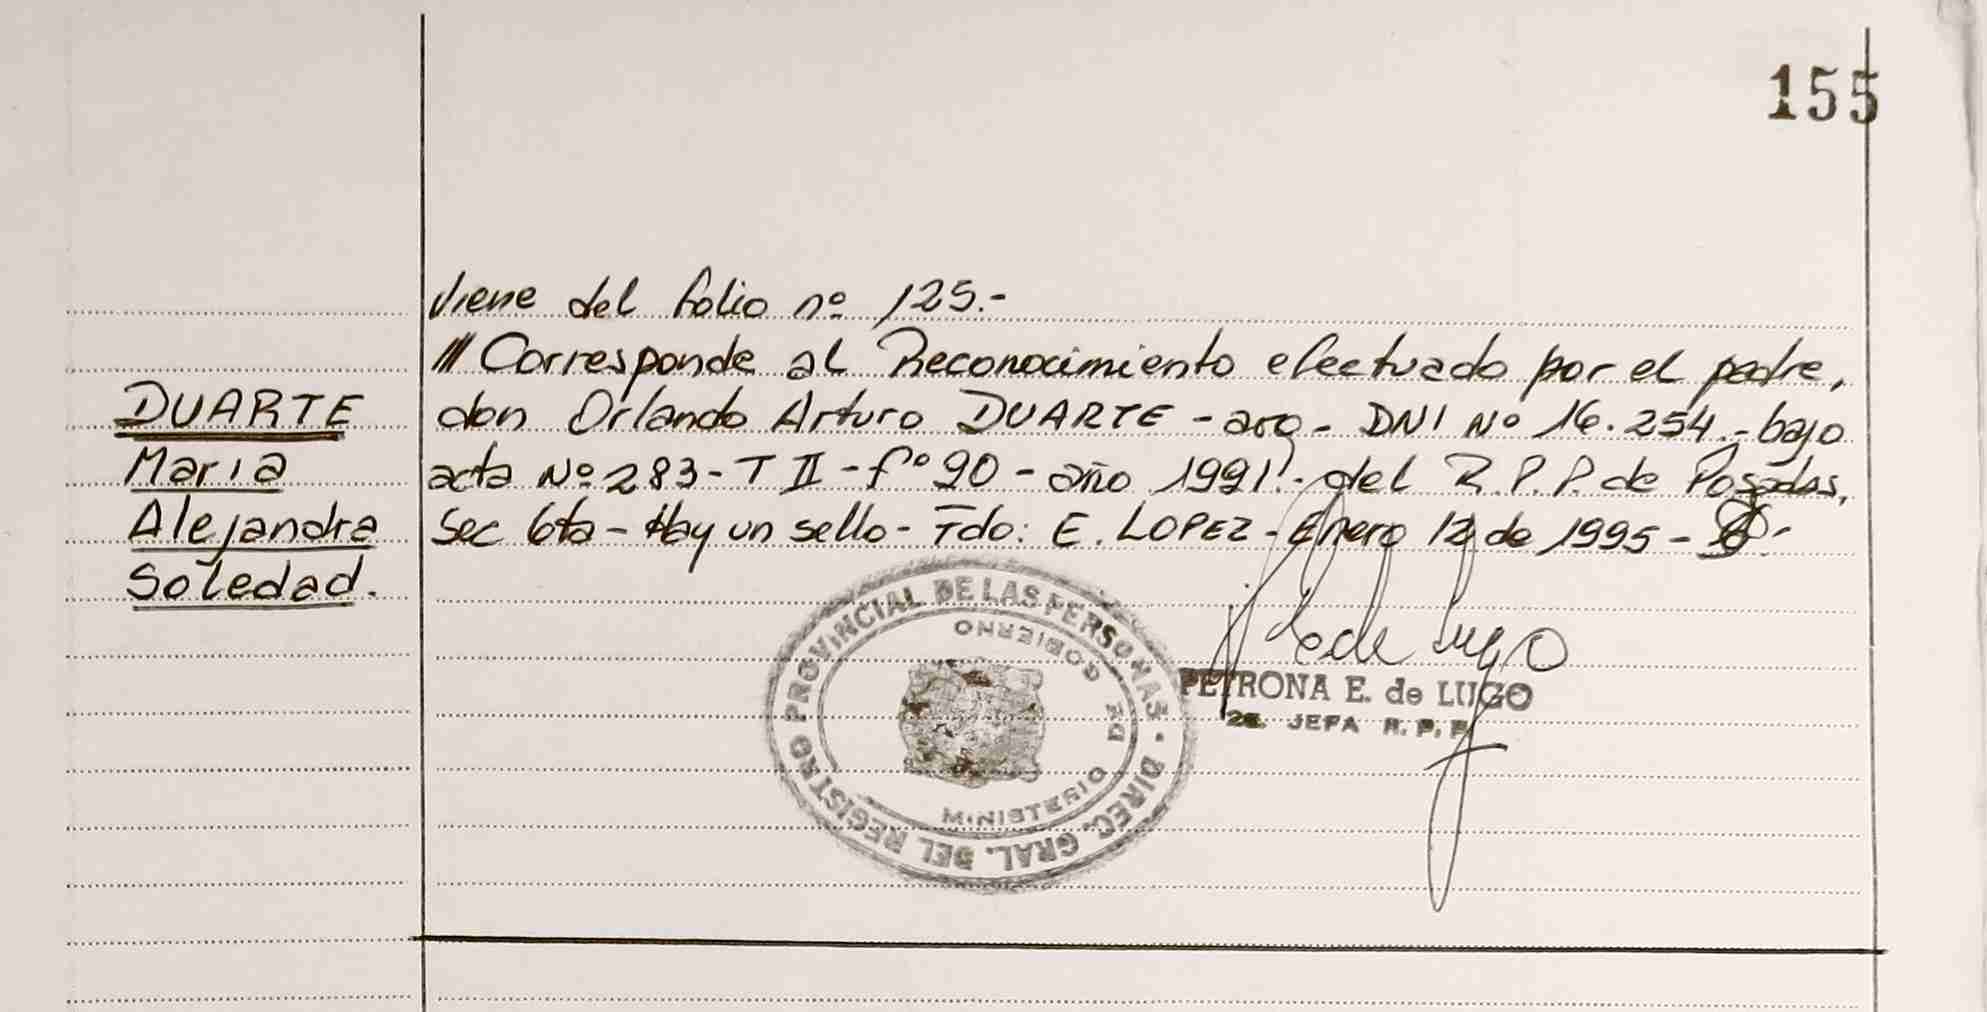 155
Viene del folio nº 125.-
/// Corresponde al Reconocimiento efectuado por el padre,
DUARTE
don Orlando Arturo DUARTE - arg - DNI Nº 16.254.- bajo
Maria
acta Nº 283 - T II - fº 90 - año 1991.- del R.P.P. de Posadas,
Alejandra
Sec 6ta - Hay un sello - Fdo: E. LOPEZ - Enero 12 de 1995 -
Soledad.
DIREC. GRAL. DEL REGISTRO PROVINCIAL DE LAS PERSONAS
MINISTERIO DE GOBIERNO
PETRONA E. de LUGO
JEFA R. P. P.